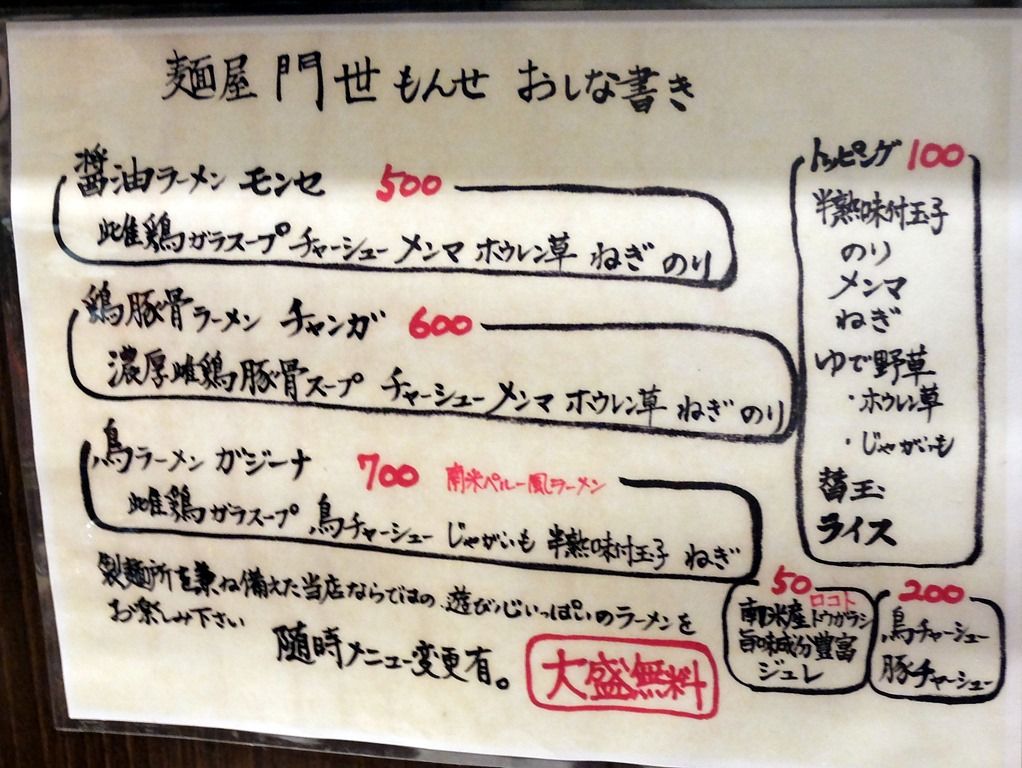 麺屋 門世 もんせ おしな書き
醤油ラーメン モンセ 500
雌鶏ガラスープ チャーシュー メンマ ホウレン草 ねぎ のり
鶏豚骨ラーメン チャンガ 600
濃厚雌鶏豚骨スープ チャーシュー メンマ ホウレン草 ねぎ のり
鳥ラーメン ガジーナ 700 南米ペルー風ラーメン
雌鶏ガラスープ 鳥チャーシュー じゃがいも 半熟味付玉子 ねぎ
製麺所を兼ね備えた当店ならではの遊び心いっぱいのラーメンを
お楽しみ下さい
随時メニュー変更有。
大盛無料
トッピング 100
半熟味付玉子
のり
メンマ
ねぎ
ゆで野草
・ホウレン草
・じゃがいも
替玉
ライス
50
ロコト
南米産ドウガラシ
旨味成分豊富
ジュレ
200
鳥チャーシュー
豚チャーシュー